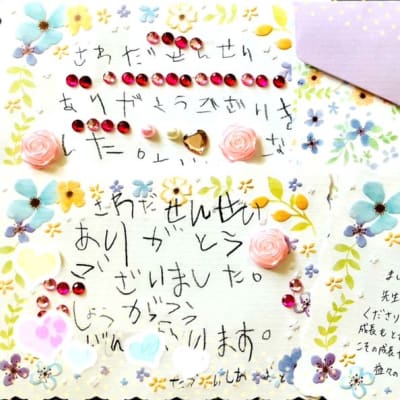 さわだせんせい
ありがとうございま
した。
さわだせんせい
ありがとう
ございました。
しょうがっこう
がんばります。
先生
くださり
成長もと
この成長
益々の